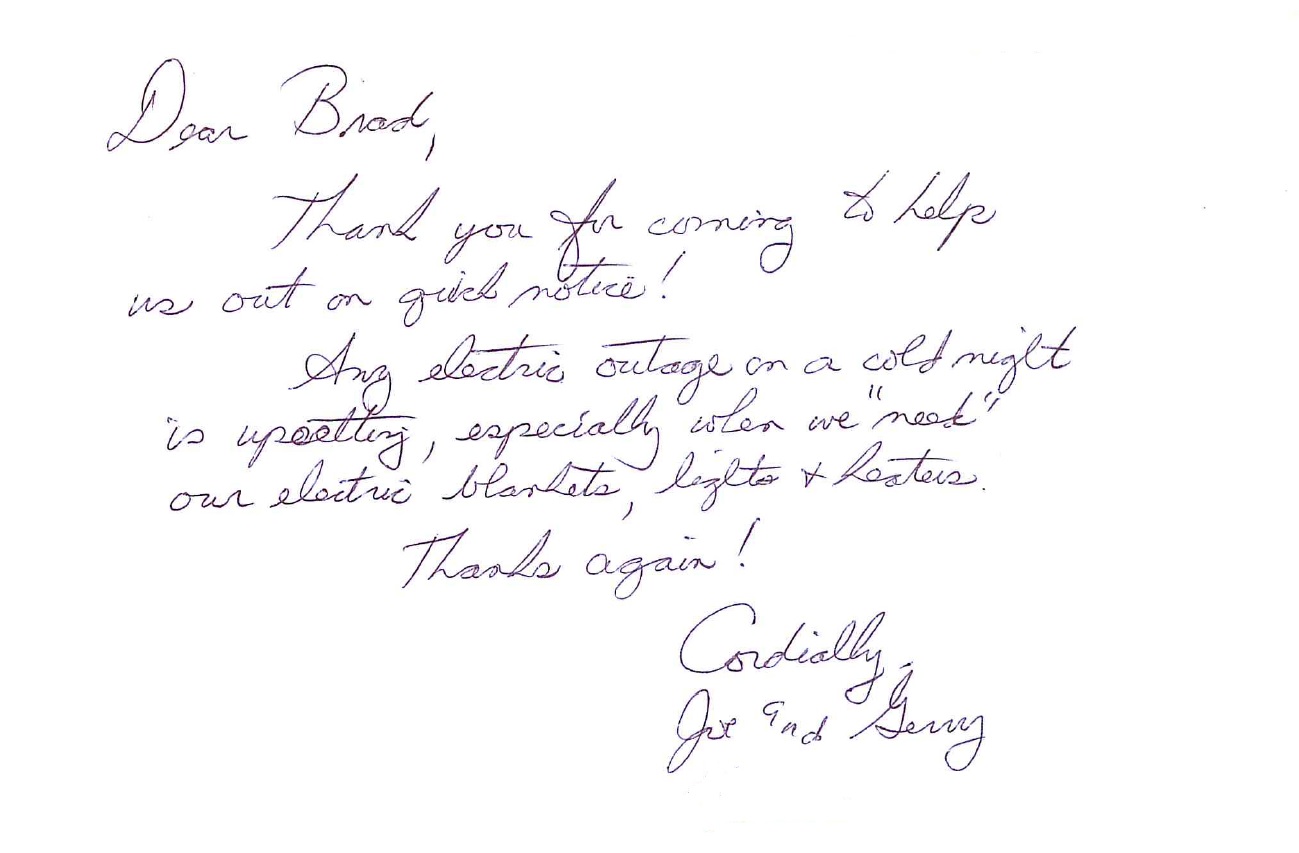 Dear Brad,
Thank you for coming to help
us out on quick notice!
Any electric outage on a cold night
is upsetting, especially when we "need"
our electric blankets, lights + heaters.
Thanks again!
Cordially,
Joe and Gerry